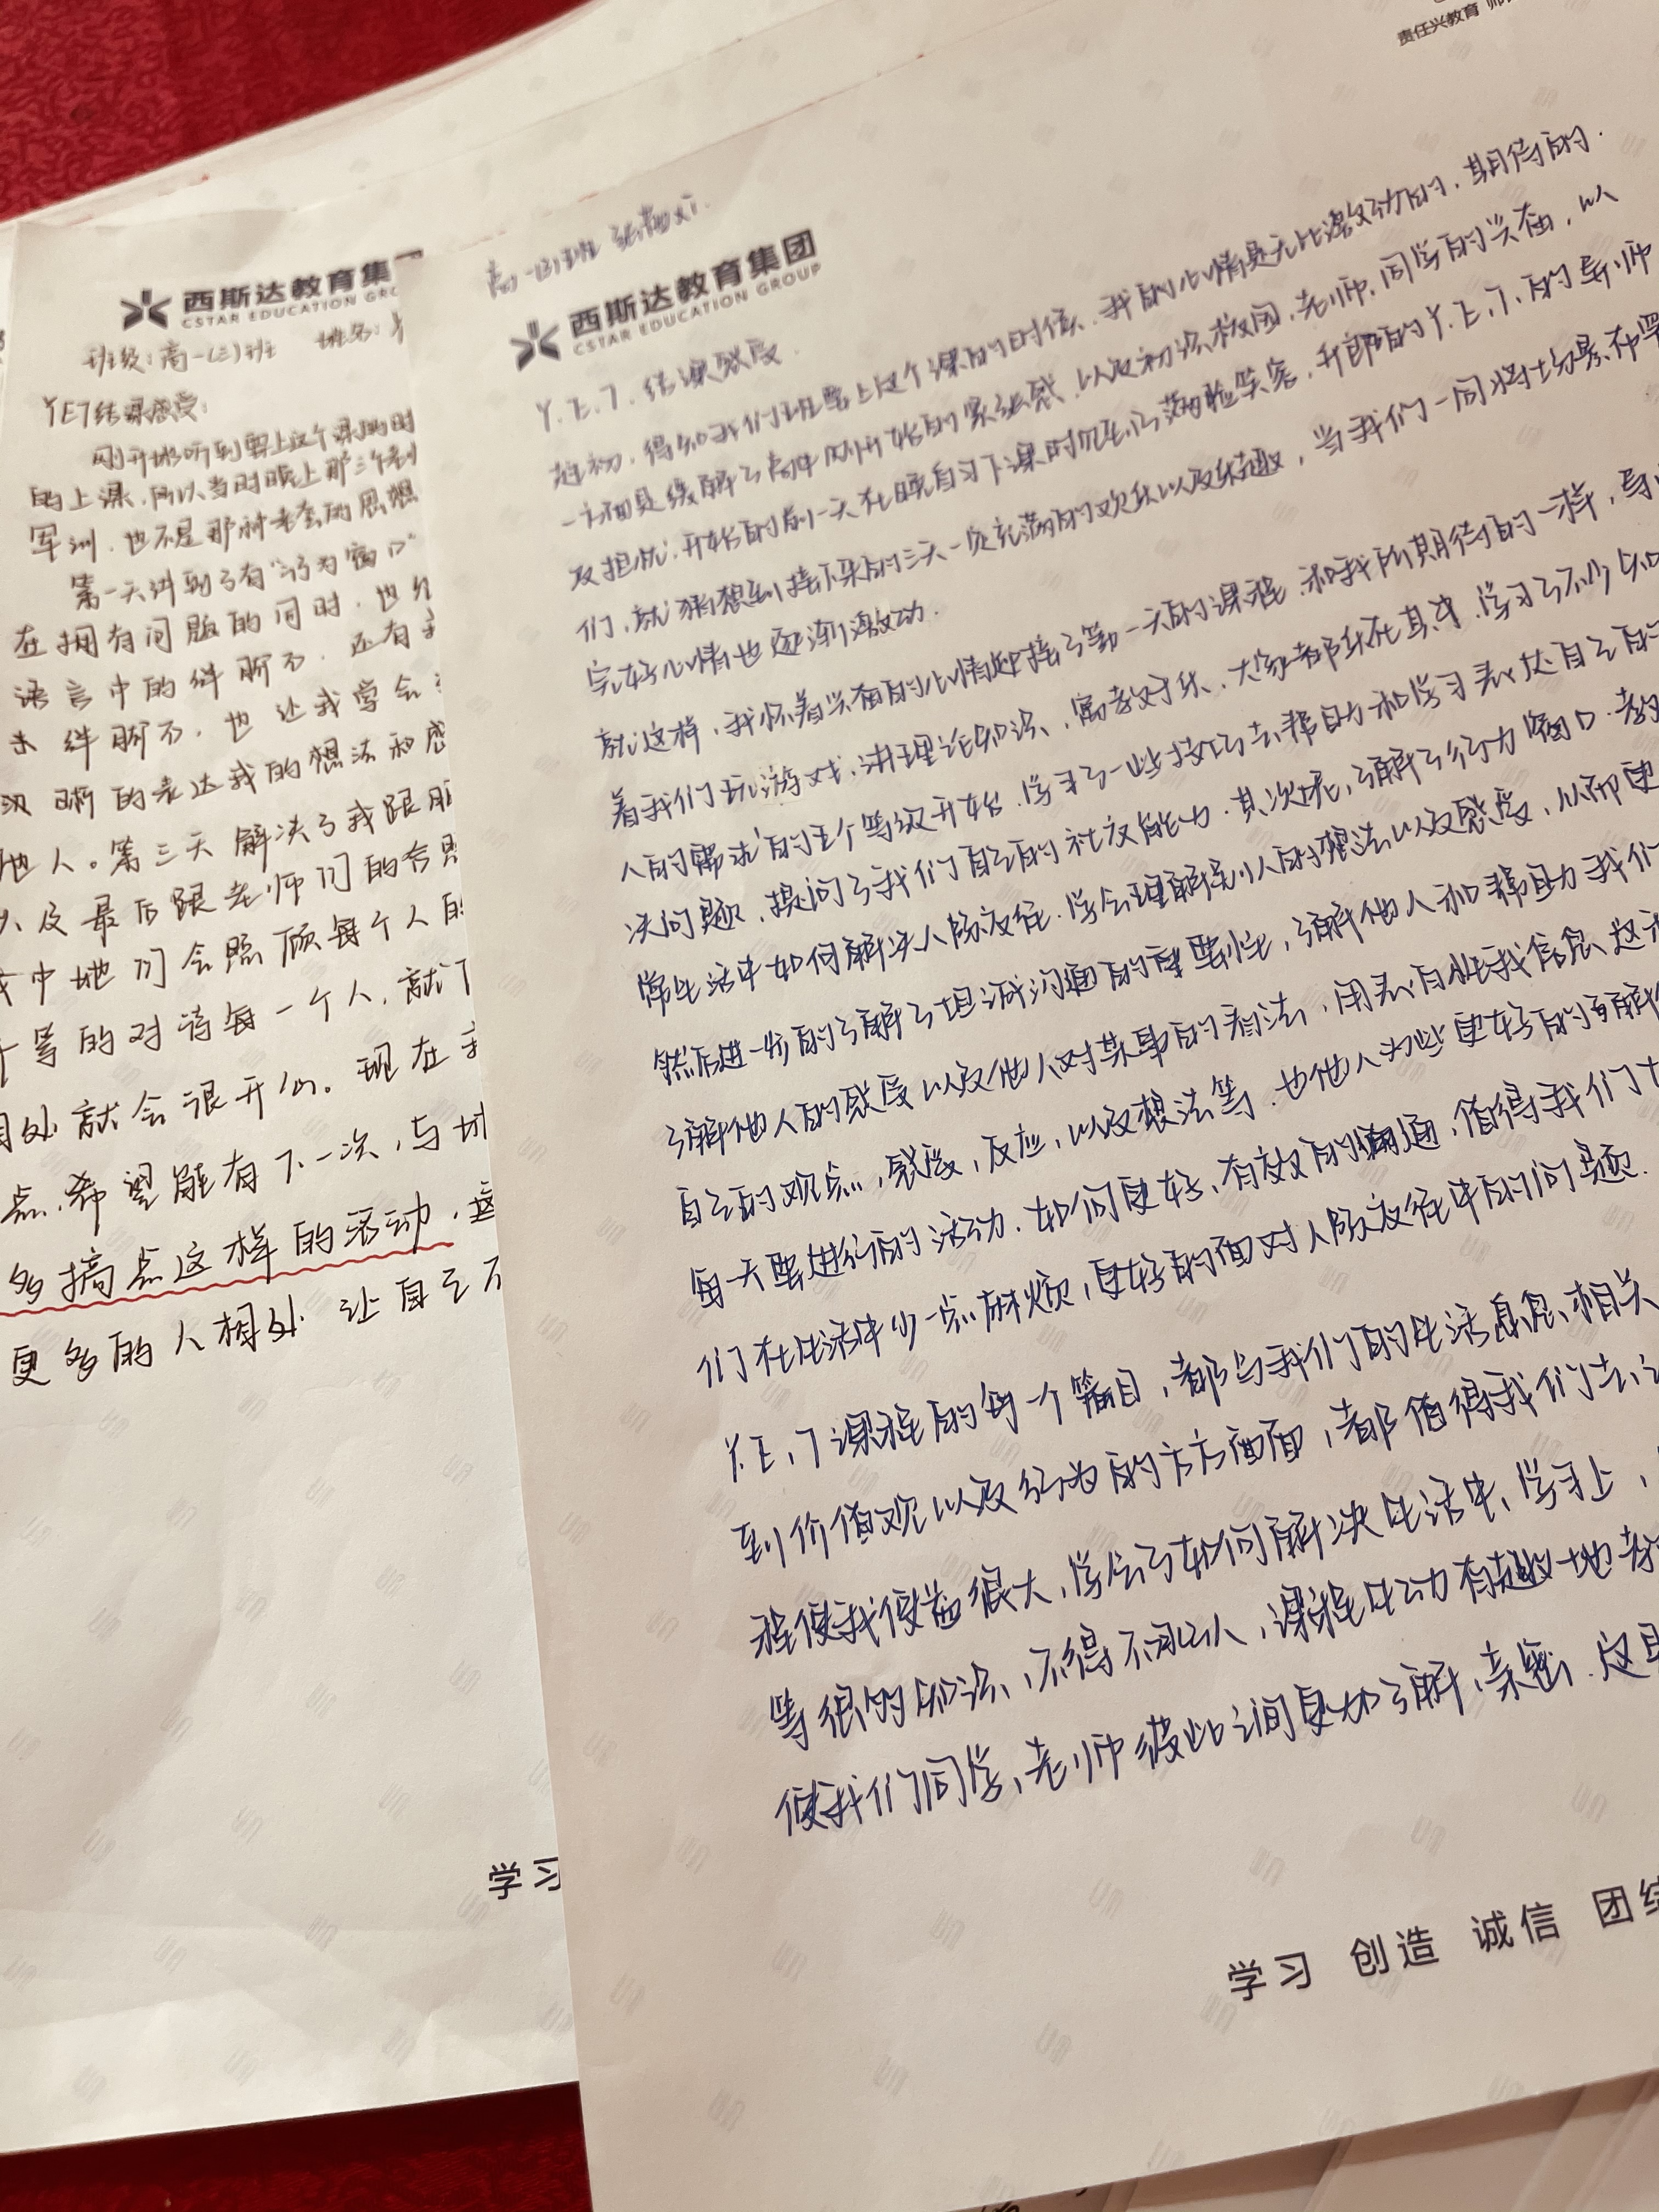 西斯达教育集
CSTAR EDUCATION GRO
班级：高一(三)班 姓名：
YET结课感受：
刚开始听到要上这个课的时
的上课，所以当时晚上那三个
军训，也不是那种老套的思想
第一天讲到了有“行为窗口”
在拥有问题的同时，也
语言中的绊脚石，还有
绊脚石，也让我学会
晰的表达我的想法和感
他人。第三天解决了我跟
以及最后跟老师们的合照
中她们会照顾每个人的
等的对待每一个人，就
相处就会很开心。现在
点，希望能有下一次，与
多搞点这样的活动，
更多的人相处 让自己
学习
责任兴教育
高一(三)班
西斯达教育集团
CSTAR EDUCATION GROUP
Y.E.T.结课感受
起初，得知我们班要上这个课的时候，我的心情是无比激动的，期待的.
一方面是缓解了高中刚开始的紧张感，以及初涉校园，老师，同学的兴奋，以
及担忧.开始的前一天在晚自习下课时见到了满脸笑容，开朗的Y.E.T.的导师
们，就猜想到接下来的三天一定充满的欢乐以及乐趣，当我们一同将场景布置
完好心情也逐渐激动.
就这样，我怀着兴奋的心情迎接了第一天的课程.和我所期待的一样，导
着我们玩游戏，讲理论知识，寓教于乐，大家都乐在其中.学习了不少知
人的需求的五个等级开始.学习了一些技巧去帮助和学习表达自己的
决问题，提问了我们自己的社交能力.其次呢，了解了行为窗口.教
常生活中如何解决人际交往.学会理解别人的想法以及感受，从而更
然后进一步的了解了坦诚沟通的重要性，了解他人和帮助我们
了解他人的感受以及他人对某事的看法，用表白性我信息 这
自己的观点，感受，反应，以及想法等.也他人为些更好的
每一天要进行的活动.如何更好，有效的沟通，值得我们
们在生活中少一点麻烦，更好的面对人际交往中的问题.
Y.E.T课程的每一个篇目，都与我们的生活息息相关
到价值观以及行为的方方面面，都值得我们去
程使我受益很大，学会了如何解决生活中，学习上，
等很多的知识，不得不承认，课程生动有趣地
使我们同学，老师彼此之间更加了解，亲密.这
学习 创造 诚信 团结